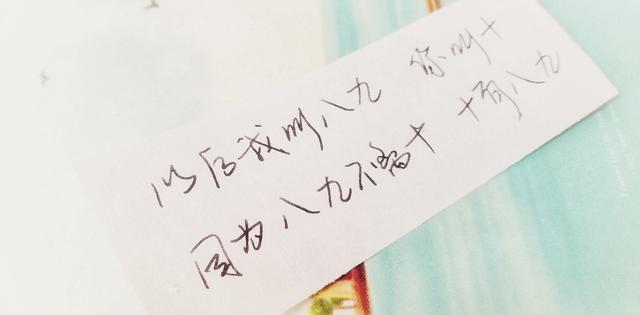 以后我叫八九 你叫十
因为八九不离十 十有八九